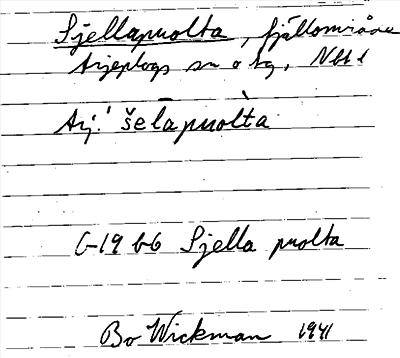 Sjellapuolta, fjällområde
Arjeplogs sn o tg, Nbt l
Arj. šēlapuoĺta
G-19 66 Sjella puolta
Bo Wickman 1941